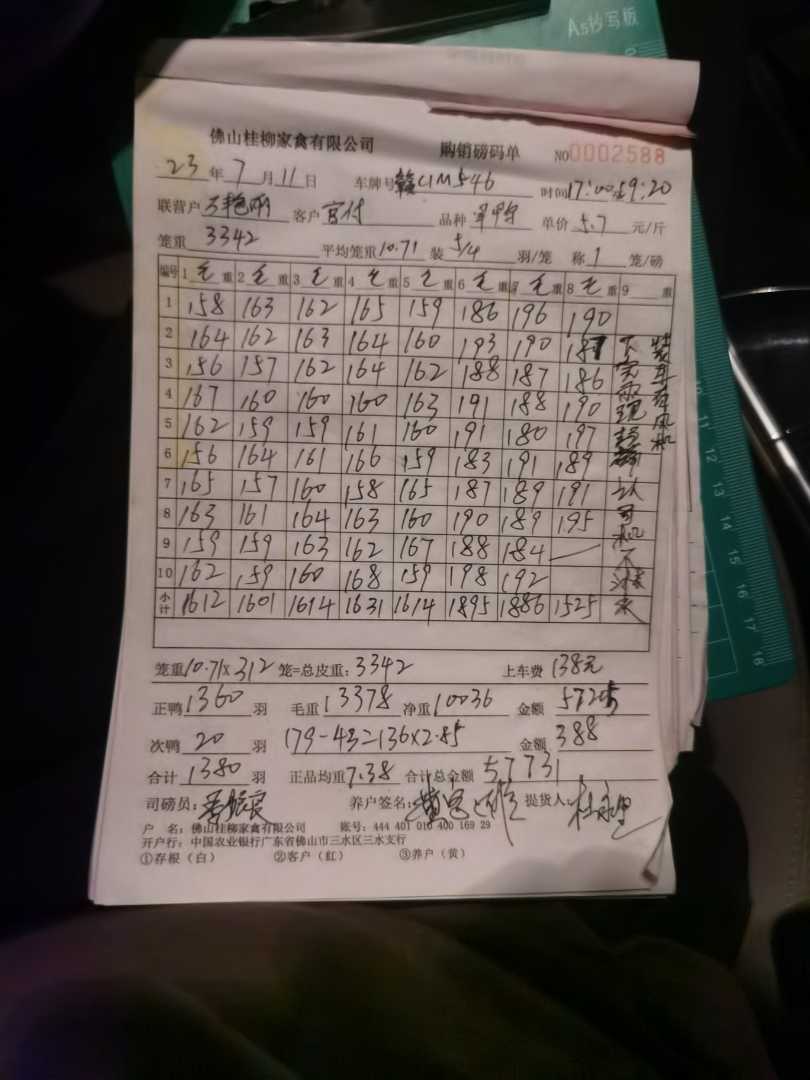 As抄写板
佛山桂柳家禽有限公司 购销磅码单 NO0002588
23年7月11日 车牌号 赣C1M546 时间17:00至19:20
联营户 客户 宫付 品种 单价 5.7 元/斤
笼重 3342 平均笼重10.71 装 5/4 羽/笼 称 1 笼/磅
编号 1 毛 重 2 毛 重 3 毛 重 4 毛 重 5 毛 重 6 毛 重 7 毛 重 8 毛 重 9 重
1 158 163 162 165 159 186 196 190
2 164 162 163 164 160 193 190 187
3 156 157 162 164 162 188 187 186
4 167 160 160 160 163 191 188 190
5 162 159 159 161 160 191 180 197
6 156 164 161 166 159 183 191 189
7 165 157 160 158 165 187 189 191
8 163 161 164 163 160 190 189 195
9 159 159 163 162 167 188 184 —
10 162 159 160 168 159 198 192
小计 1612 1601 1614 1631 1614 1895 1886 1525
装车有风机
笼重10.71×312 笼=总皮重:3342 上车费 138元
正鸭 1360 羽 毛重 13378 净重 10036 金额
次鸭 20 羽 179-43=136×2.85 金额 388
合计 1380 羽 正品均重7.38 合计总金额 57731
司磅员: 养户签名: 提货人:
户 名:佛山桂柳家禽有限公司 账号:444 401 010 400 169 29
开户行:中国农业银行广东省佛山市三水区三水支行
①存根(白) ②客户(红) ③养户(黄)
10
11
12
13
14
15
16
17
18